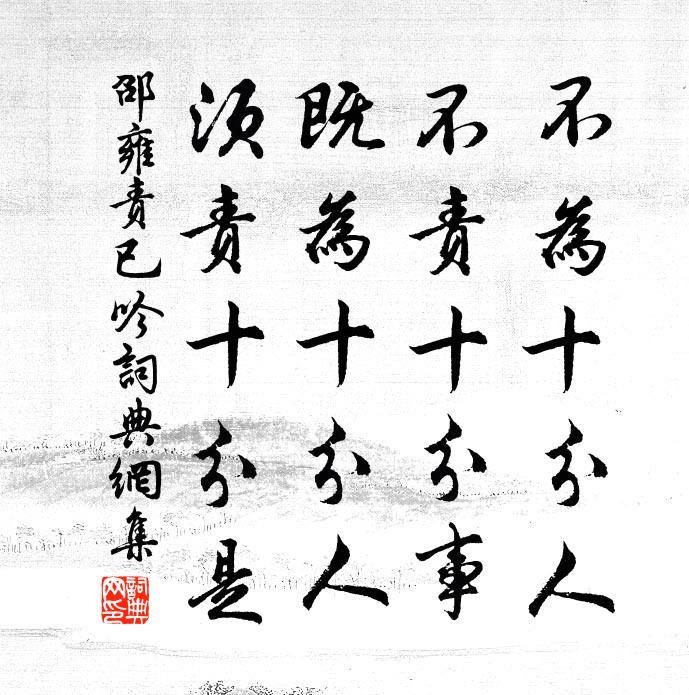 不為十分人
不責十分事
既為十分人
須責十分是
邵雍責已吟詞典網集
詞典
网印